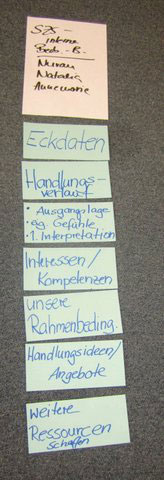 SZS -
interne
Beob. - B -
Nuran
Natalia
Annemarie
Eckdaten
Handlungs-
verlauf
• Ausgangslage
• eg. Gefühle
• 1. Interpretation
Interessen/
Kompetenzen
unsere
Rahmenbeding.
Handlungsideen/
Angebote
weitere
Ressourcen
schaffen